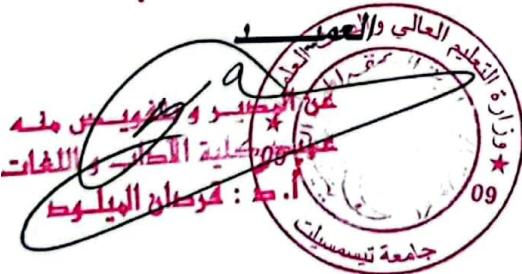 العميـــد
وزارة التعليم العالي والبحث العلمي
عن المدير وبتفويض منه
عميد كلية الآداب واللغات
أ. د : قرصان الميلود
09
جامعة تيسمسيلت